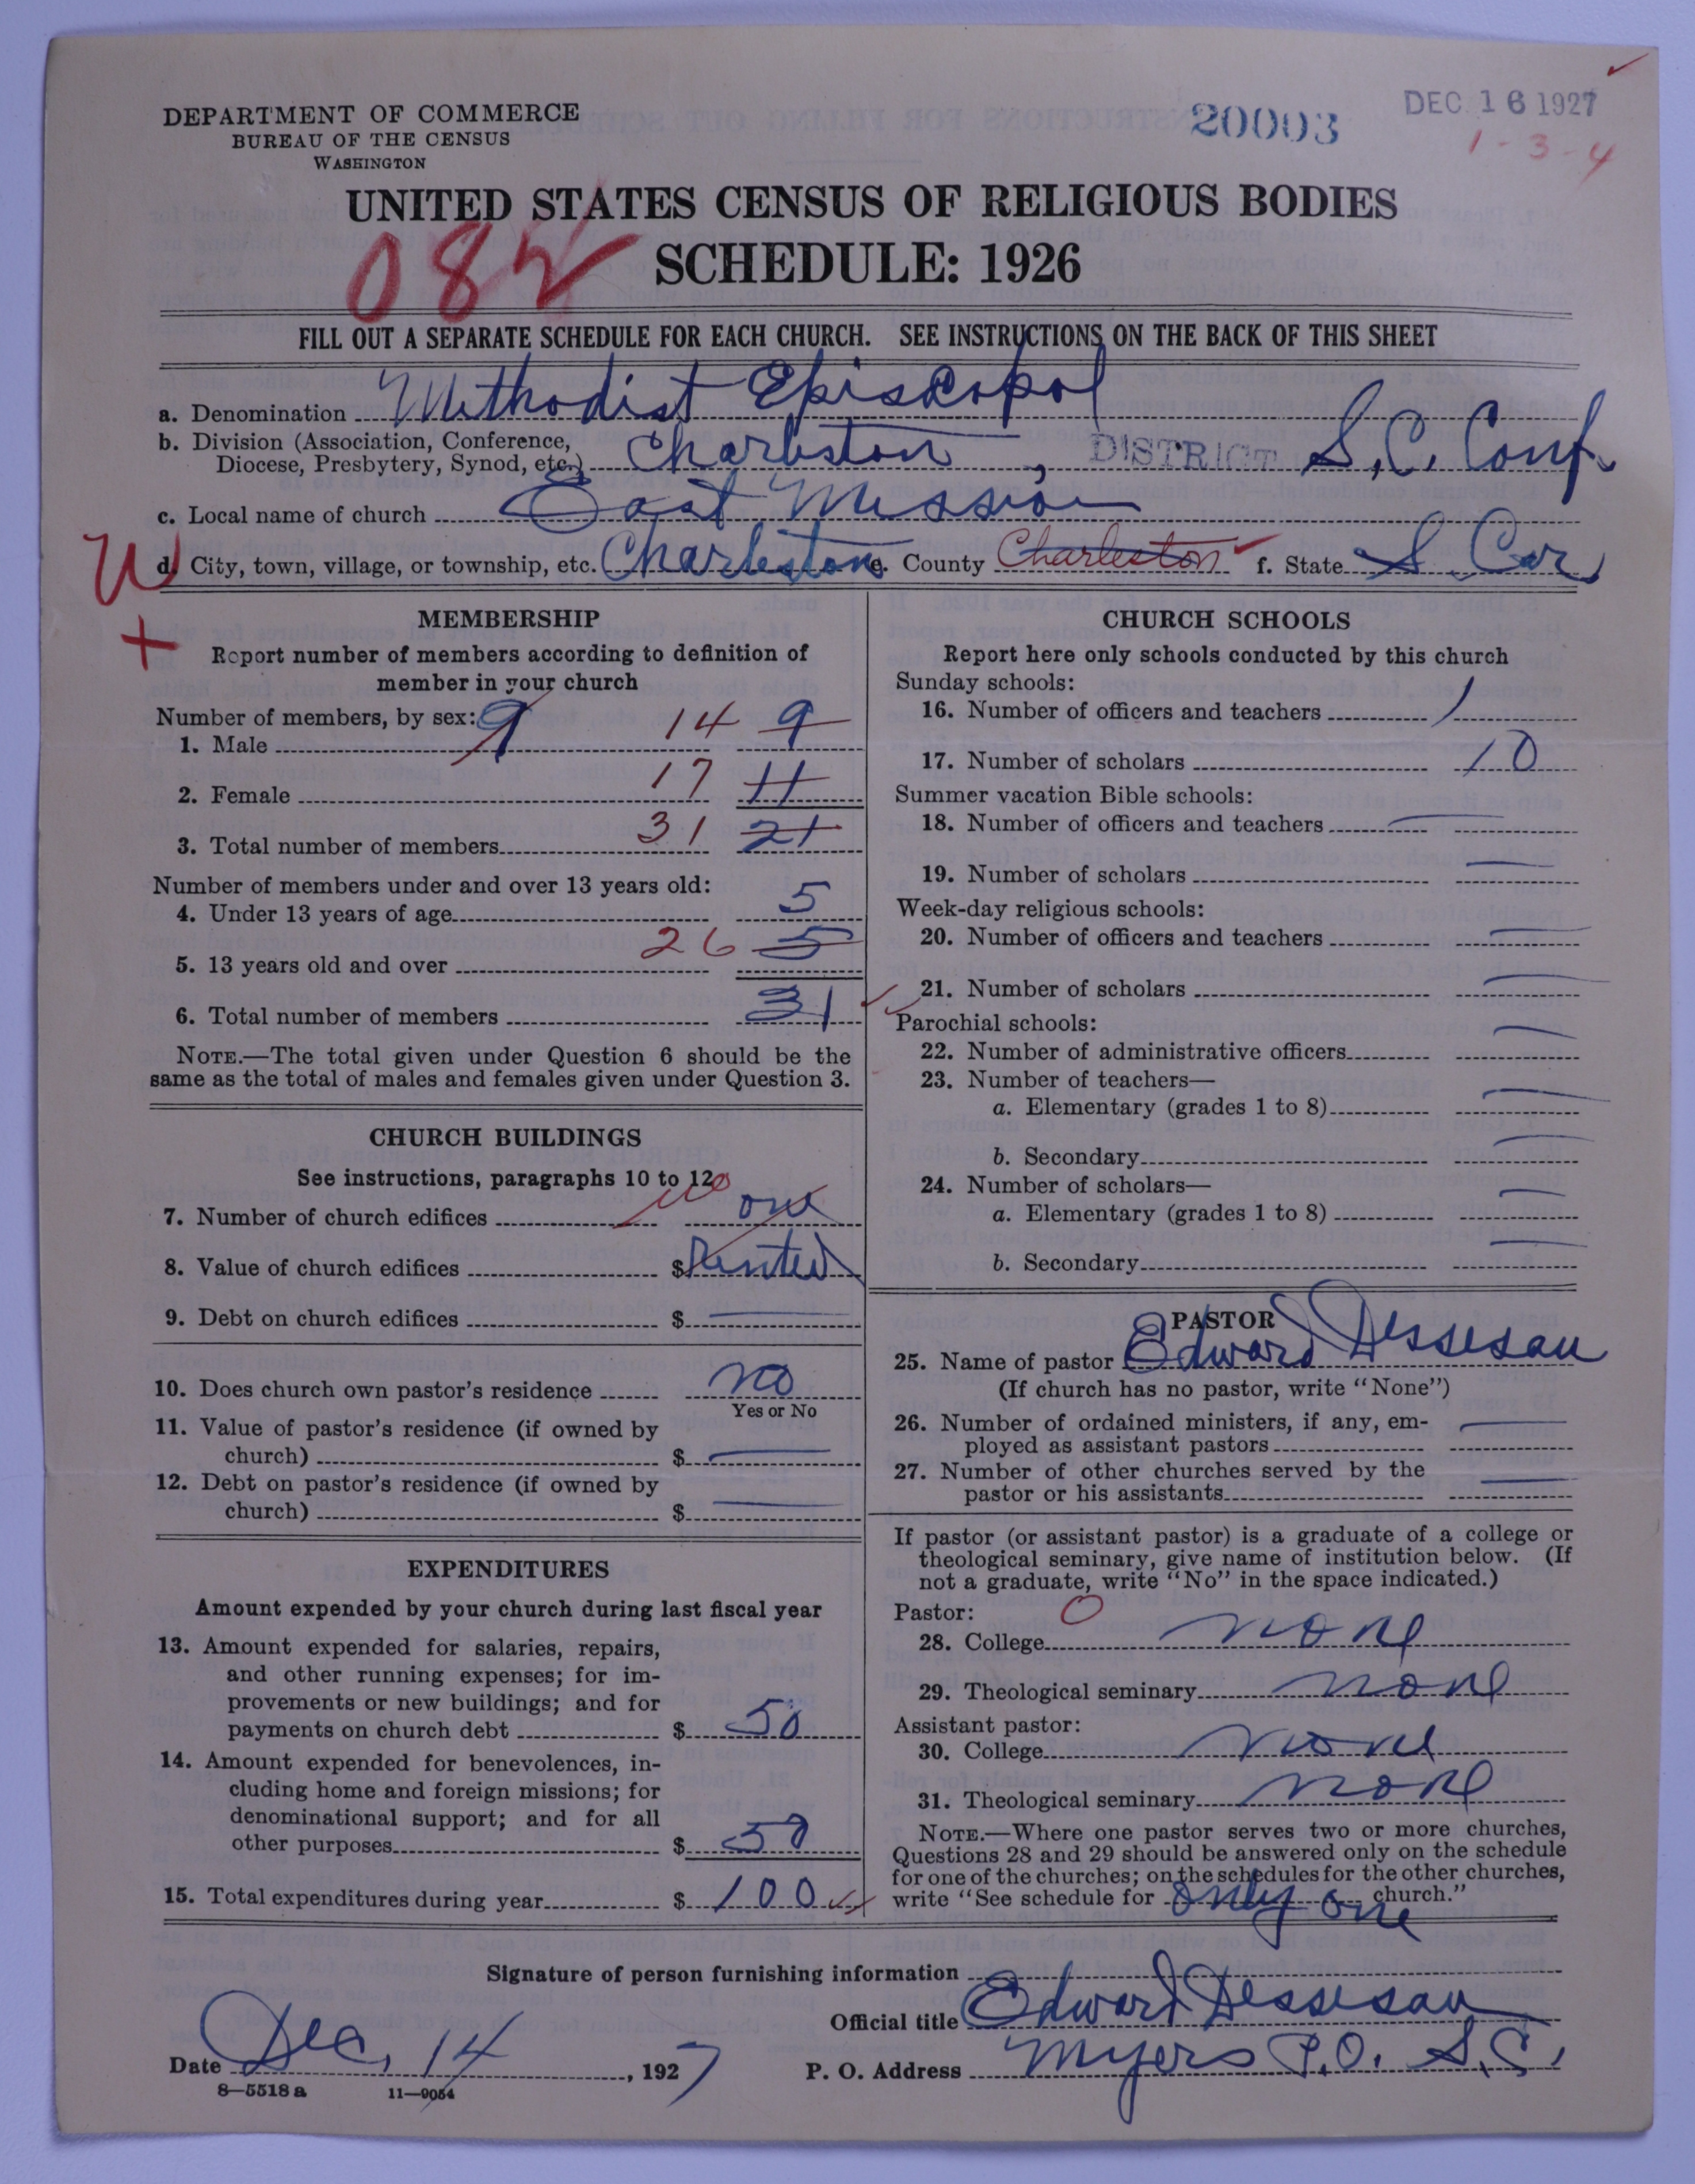 DEPARTMENT OF COMMERCE
BUREAU OF THE CENSUS
WASHINGTON
20003
DEC 16 1927
1-3-4
UNITED STATES CENSUS OF RELIGIOUS BODIES
SCHEDULE: 1926
082
FILL OUT A SEPARATE SCHEDULE FOR EACH CHURCH. SEE INSTRUCTIONS ON THE BACK OF THIS SHEET
a. Denomination Methodist Episcopol
b. Division (Association, Conference,
Diocese, Presbytery, Synod, etc.) Charleston, DISTRICT S.C. Conf.
c. Local name of church East Mission
W d. City, town, village, or township, etc. Charleston e. County Charleston f. State S. Car
+
MEMBERSHIP
Report number of members according to definition of
member in your church
Number of members, by sex: 9
1. Male 14 9
2. Female 17 11
3. Total number of members 31 21
Number of members under and over 13 years old:
4. Under 13 years of age 5
5. 13 years old and over 26 5
6. Total number of members 31
NOTE.—The total given under Question 6 should be the
same as the total of males and females given under Question 3.
CHURCH BUILDINGS
See instructions, paragraphs 10 to 12
7. Number of church edifices no one
8. Value of church edifices $ Rented
9. Debt on church edifices $ —
10. Does church own pastor's residence no
Yes or No
11. Value of pastor's residence (if owned by
church) $ —
12. Debt on pastor's residence (if owned by
church) $ —
EXPENDITURES
Amount expended by your church during last fiscal year
13. Amount expended for salaries, repairs,
and other running expenses; for im-
provements or new buildings; and for
payments on church debt $ 50
14. Amount expended for benevolences, in-
cluding home and foreign missions; for
denominational support; and for all
other purposes $ 50
15. Total expenditures during year $ 100
CHURCH SCHOOLS
Report here only schools conducted by this church
Sunday schools:
16. Number of officers and teachers 1
17. Number of scholars 10
Summer vacation Bible schools:
18. Number of officers and teachers —
19. Number of scholars —
Week-day religious schools:
20. Number of officers and teachers —
21. Number of scholars —
Parochial schools:
22. Number of administrative officers —
23. Number of teachers—
a. Elementary (grades 1 to 8) —
b. Secondary —
24. Number of scholars—
a. Elementary (grades 1 to 8) —
b. Secondary —
PASTOR
25. Name of pastor Edward Dessesau
(If church has no pastor, write "None")
26. Number of ordained ministers, if any, em-
ployed as assistant pastors —
27. Number of other churches served by the
pastor or his assistants —
If pastor (or assistant pastor) is a graduate of a college or
theological seminary, give name of institution below. (If
not a graduate, write "No" in the space indicated.)
Pastor: 0
28. College none
29. Theological seminary none
Assistant pastor:
30. College none
31. Theological seminary none
NOTE.—Where one pastor serves two or more churches,
Questions 28 and 29 should be answered only on the schedule
for one of the churches; on the schedules for the other churches,
write "See schedule for only one church."
Signature of person furnishing information
Official title Edward Dessesau
Date Dec, 14, 1927 P. O. Address Myers P.O. S.C.
8—5518 a 11—9054